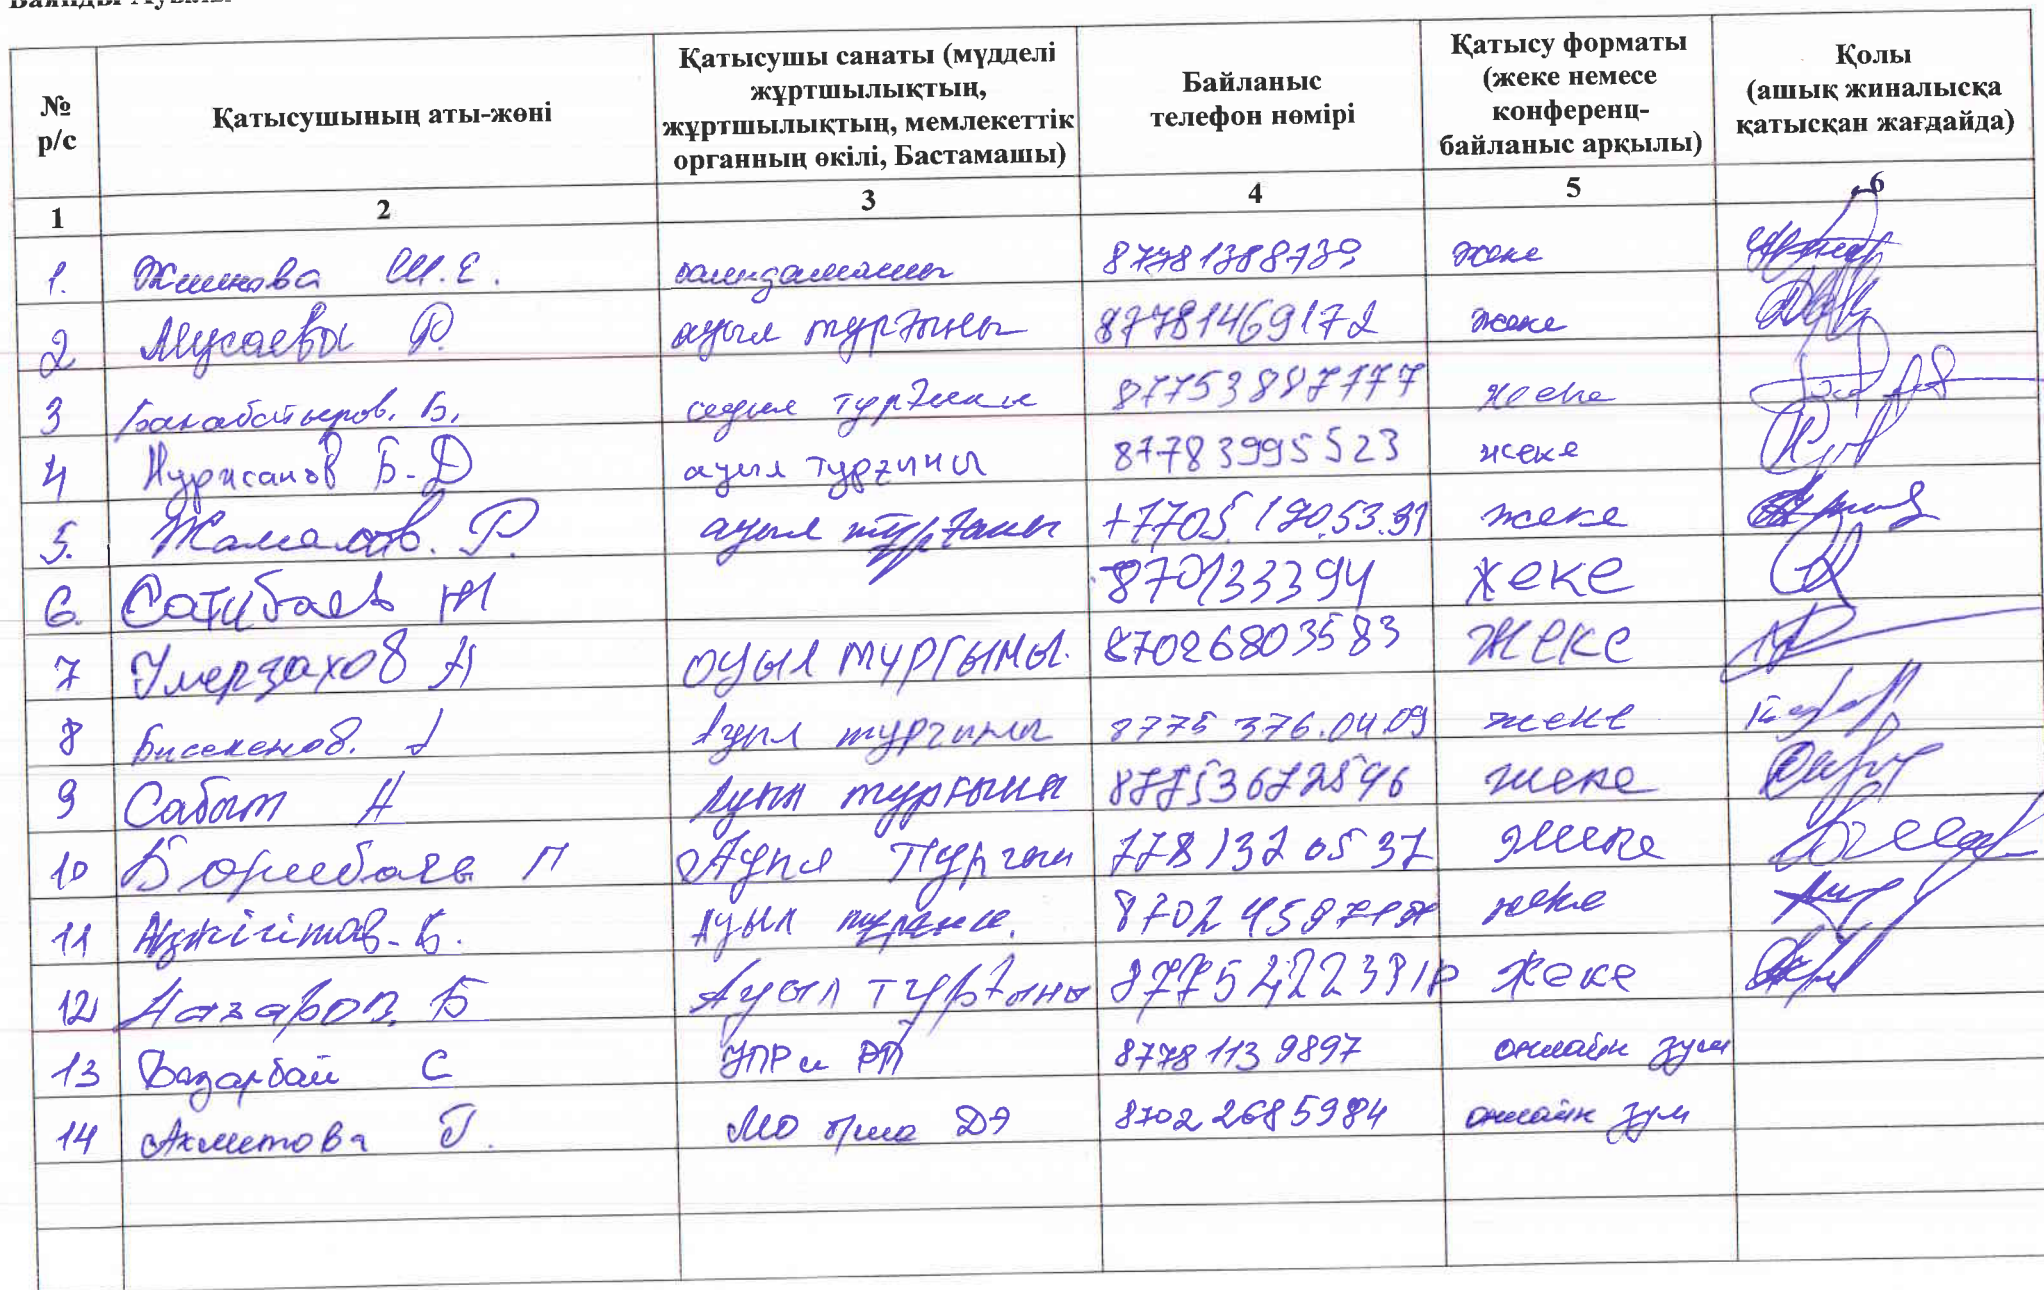 № р/с
Қатысушының аты-жөні
Қатысушы санаты (мүдделі
жұртшылықтың,
жұртшылықтың, мемлекеттік
органның өкілі, Бастамашы)
Байланыс
телефон нөмірі
Қатысу форматы
(жеке немесе
конференц-
байланыс арқылы)
Қолы
(ашық жиналысқа
қатысқан жағдайда)
1 2 3 4 5 6
1. Ш.Е. 87781388739 жеке
2 Мусаевы Р. ауыл тұрғыны 87781469172 жеке
3 Б. ауыл 87753887777 жеке
4 Нуржсанов Б-Д ауыл турғыны 87783995523 жеке
5. Жамалов. Р. ауыл +7705.190.53.91 жеке
6. Сатибаев М 870133394 жеке
7 Умерзахов А ауыл мургыны. 87026803583 жеке
8 Бисекенов. А Ауыл тургыны 8775 376.04.09 жеке
9 Сабыт А Ауыл тургыны 87753672596 жеке
10 П Ауыл 778 132 05 37 жеке
11 Б. Ауыл 8702 459 жеке
12 Назаров. Б Ауыл турғыны жеке
13 Базарбай С УПР и РП 8778 113 9897 онлайн зум
14 Ахметова Г. МО ДЭ 8702 268 5984 онлайн зум